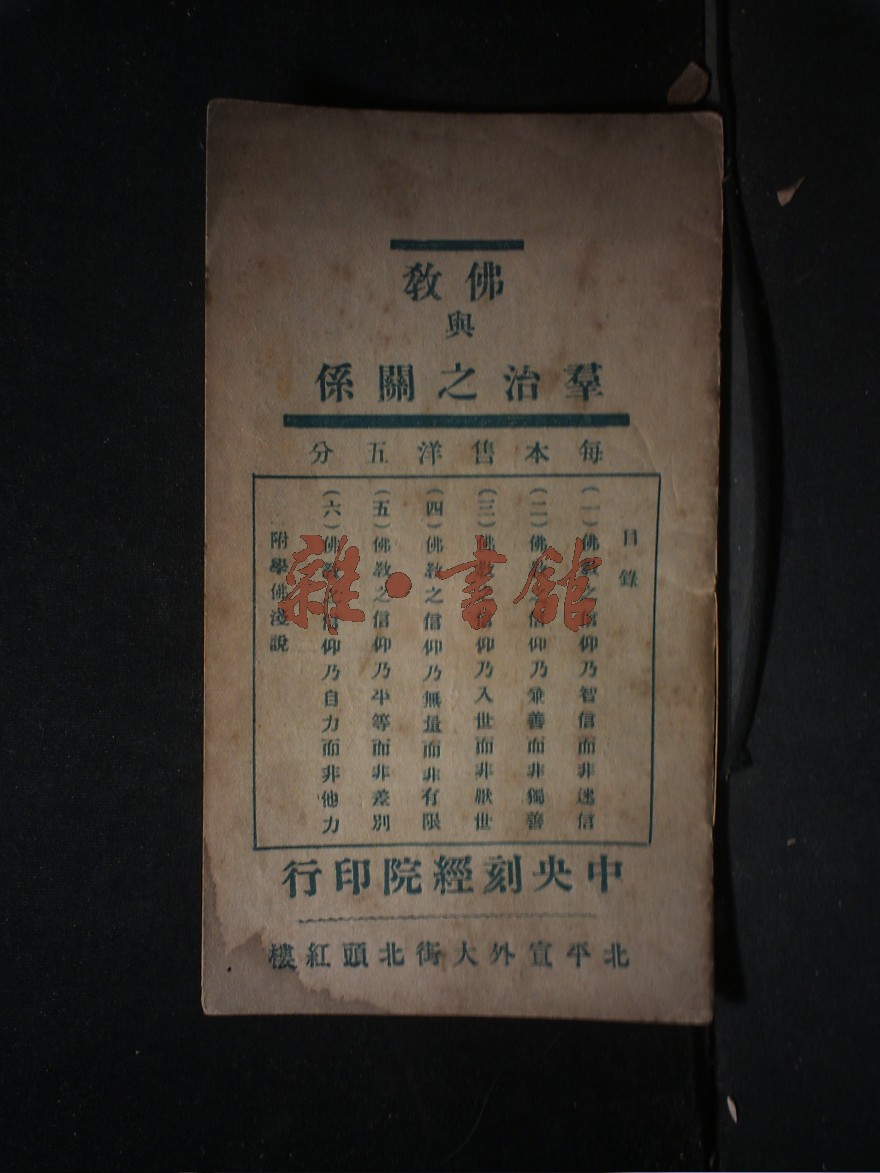 佛教
與
羣治之關係
每本售洋五分
目錄
(一)佛教之信仰乃智信而非迷信
(二)佛教之信仰乃兼善而非獨善
(三)佛教之信仰乃入世而非厭世
(四)佛教之信仰乃無量而非有限
(五)佛教之信仰乃平等而非差別
(六)佛教之信仰乃自力而非他力
附學佛淺說
中央刻經院印行
北平宣外大街北頭紅樓
雜·書館